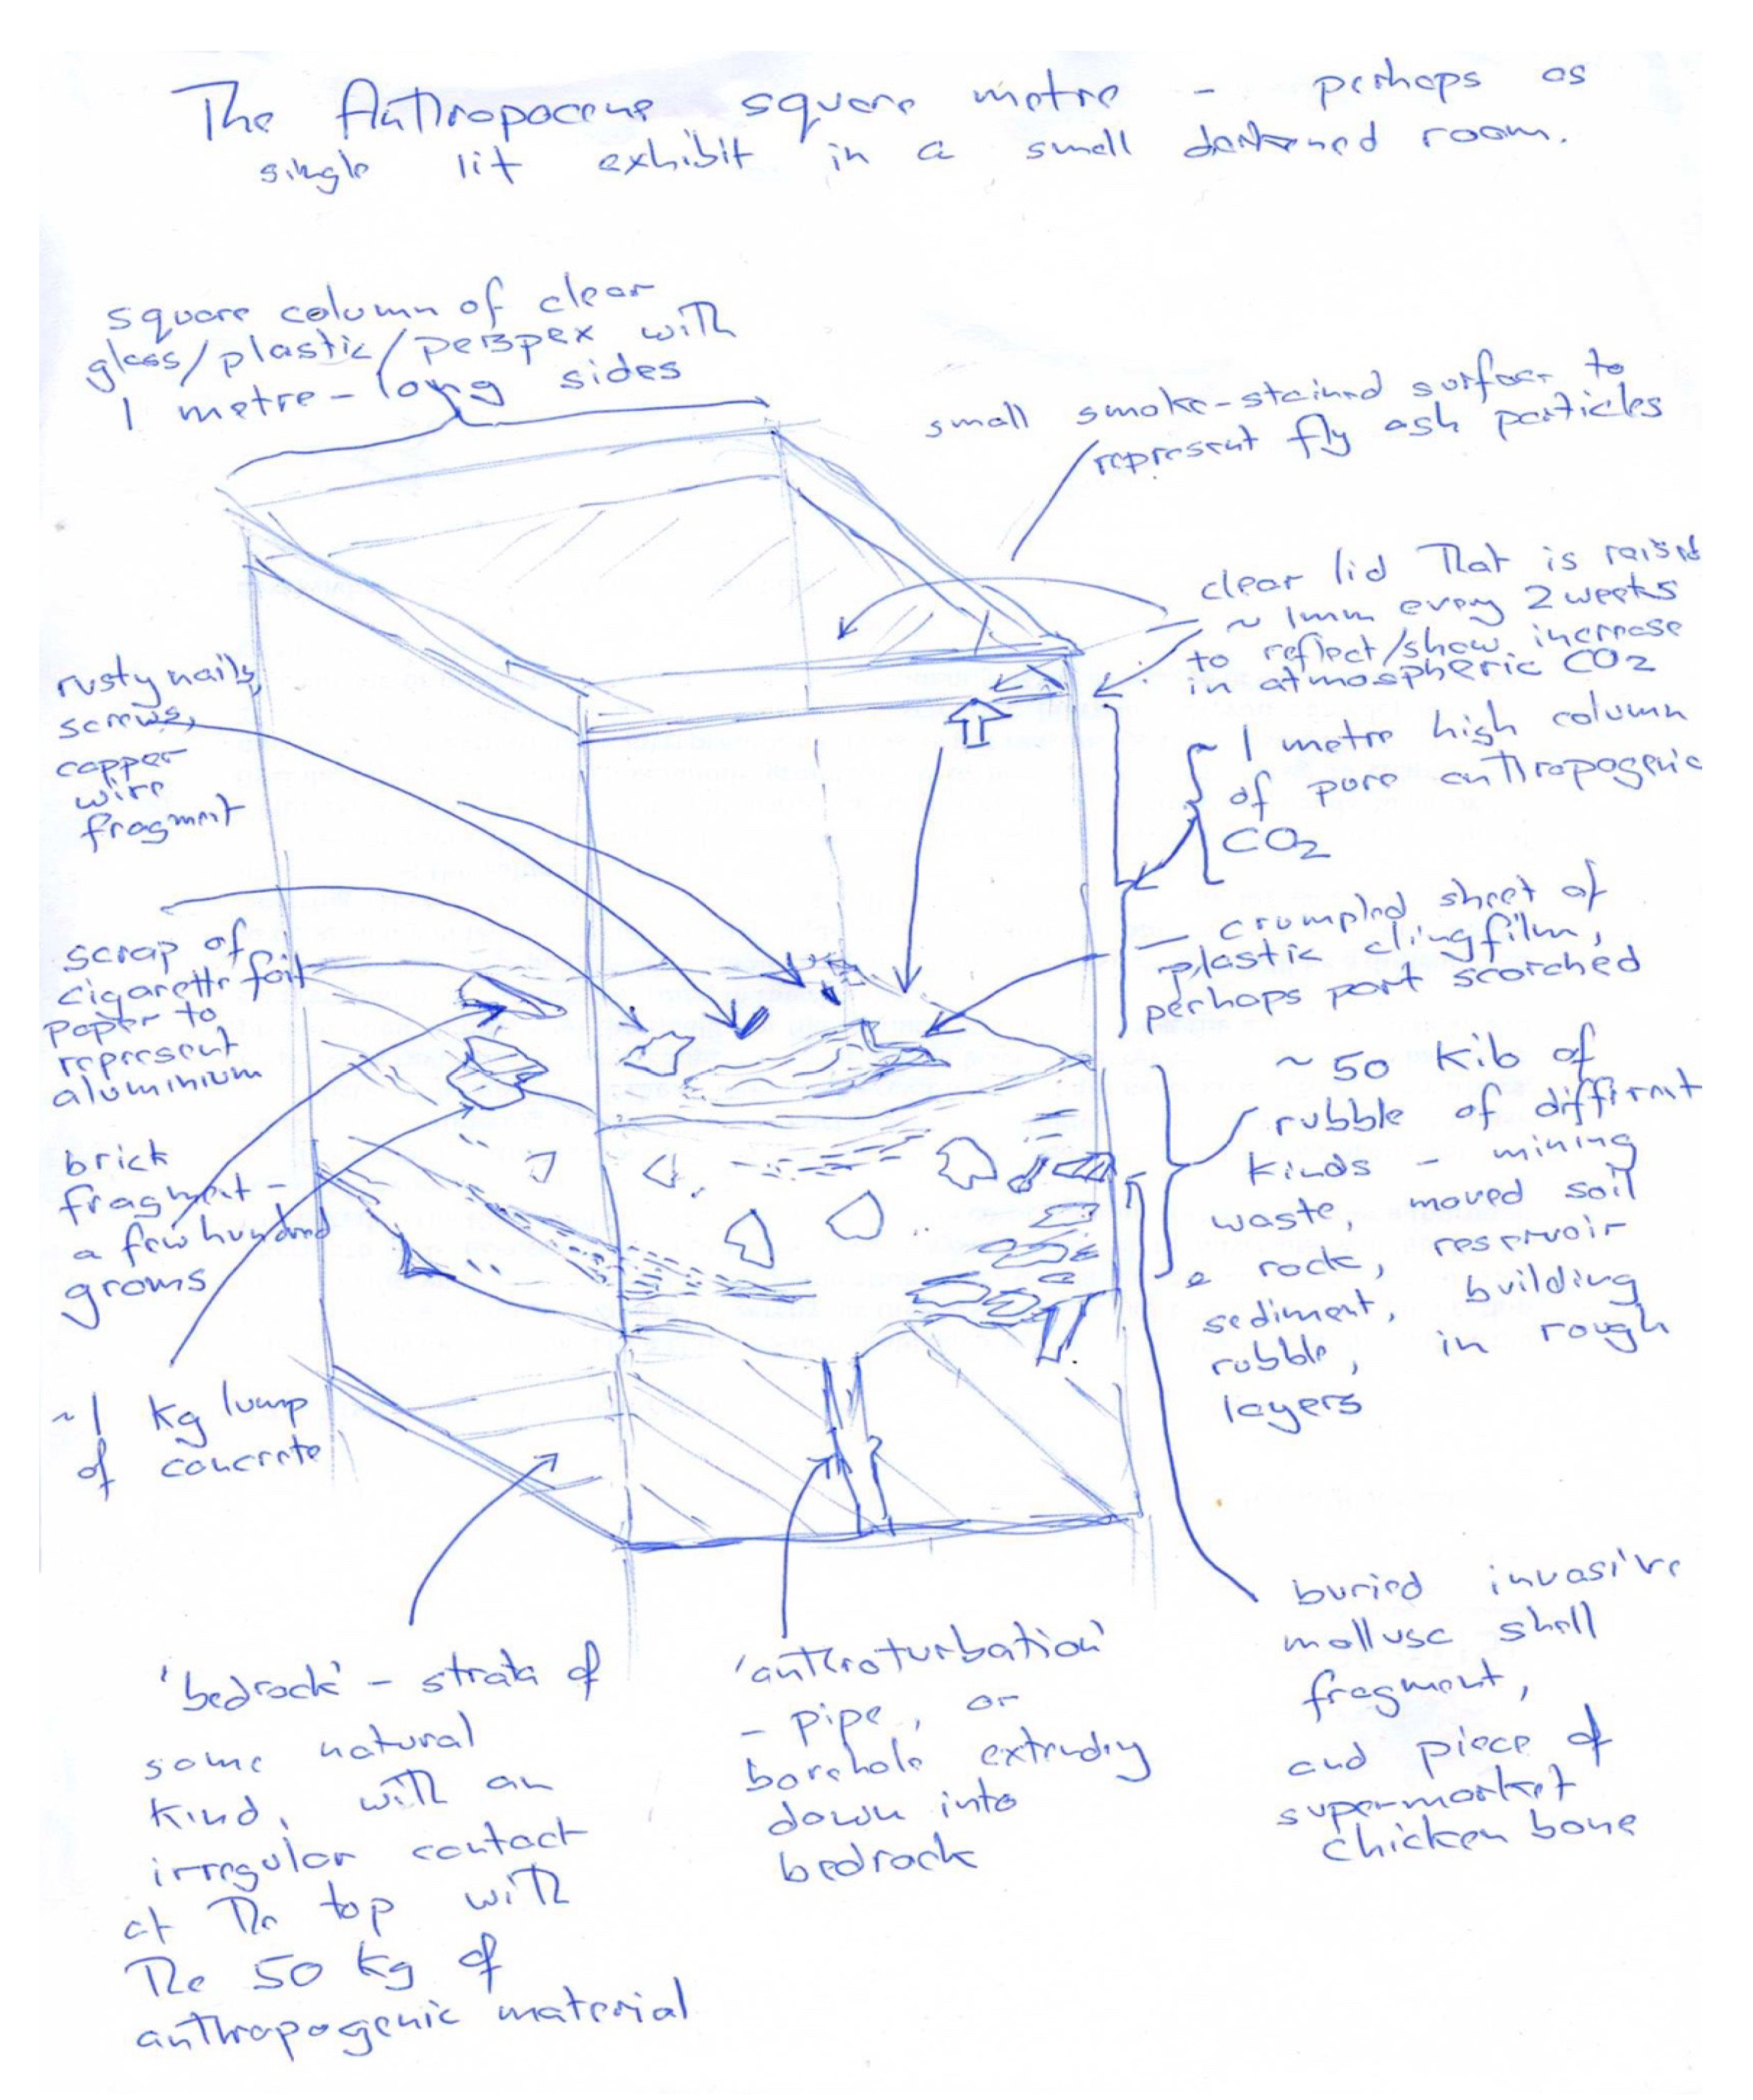 The Anthropocene square metre - perhaps as
single lit exhibit in a small darkened room.
square column of clear
glass/plastic/perspex with
1 metre-long sides
small smoke-stained surface to
represent fly ash particles
clear lid that is raised
~ 1mm every 2 weeks
to reflect/show increase
in atmospheric CO2
~ 1 metre high column
of pure anthropogenic
CO2
- crumpled sheet of
plastic clingfilm,
perhaps part scorched
~ 50 kilo of
rubble of different
kinds - mining
waste, moved soil
& rock, reservoir
sediment, building
rubble, in rough
layers
rusty nails,
screws,
copper
wire
fragment
scrap of
cigarette foil
paper to
represent
aluminium
brick
fragment -
a few hundred
grams
~1 kg lump
of concrete
'bedrock' - strata of
some natural
kind, with an
irregular contact
at the top with
the 50 kg of
anthropogenic material
'anthroturbation'
- pipe, or
borehole extrudy
down into
bedrock
buried invasive
mollusc shell
fragment,
and piece of
supermarket
chicken bone